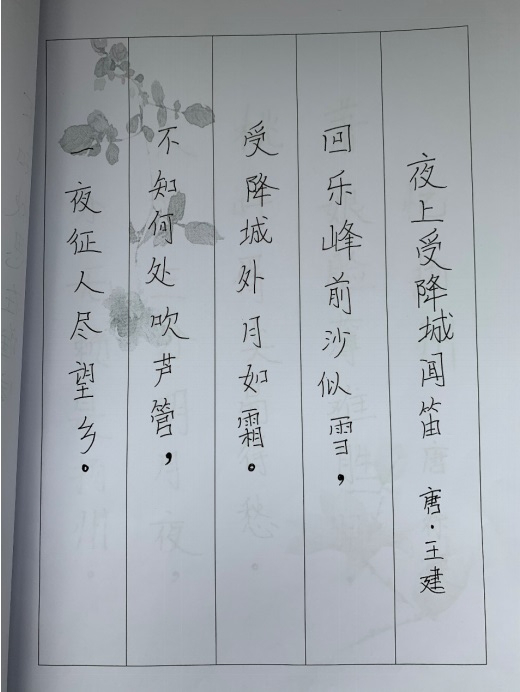 夜上受降城闻笛 唐·王建
回乐峰前沙似雪，
受降城外月如霜。
不知何处吹芦管，
一夜征人尽望乡。